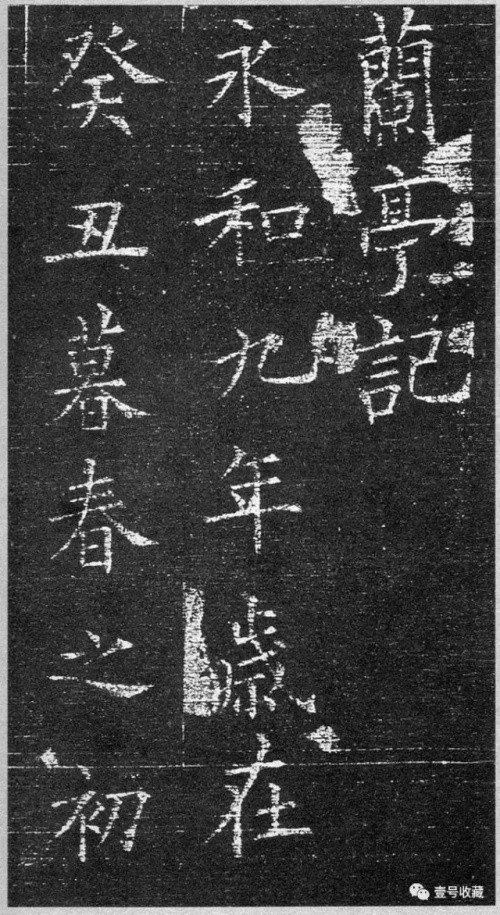 蘭亭記
永和九年歲在
癸丑暮春之初
壹号收藏